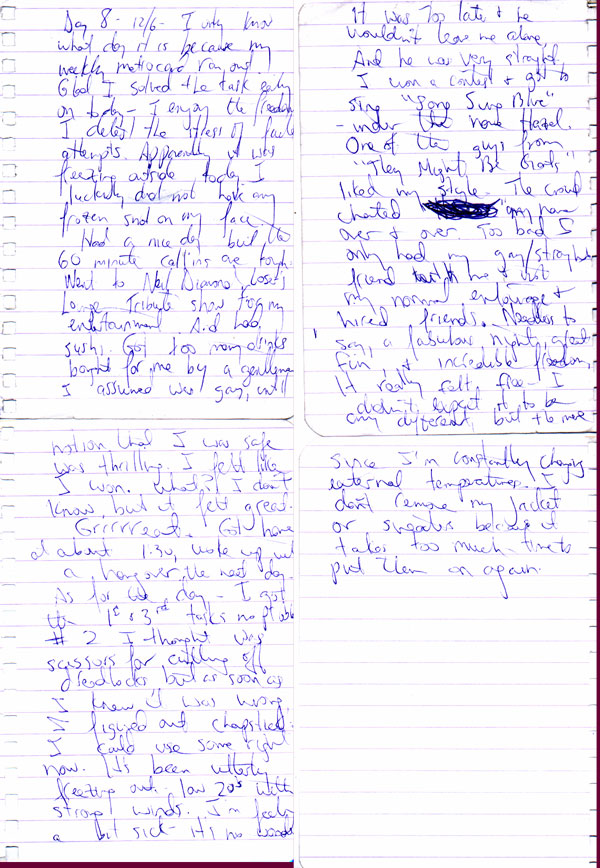 Day 8 - 12/6 - I only know
what day it is because my
weekly metrocard ran out.
Glad I solved the task early
on today - I enjoy the freedom
I detest the stress of
attempts. Apparently it was
freezing outside today. I
luckily did not have any
frozen snot on my face.
Had a nice day but the
60 minute calling are tough.
Went to Neil Diamond
Tribute show for my
entertainment. And had
sushi. Got too many drinks
bought for me by a gentleman
I assumed was gay, until
it was too late & he
wouldn't leave me alone,
And he was very straight,
I won a contest & got to
sing "Song Sung Blue"
- under the name Hazel.
One of the guys from
"They Might Be Giants"
liked my style. The crowd
chanted my name
over & over. Too bad I
only had my gay/straight
friend with me & not
my normal entourage &
hired friends. Needless to
say, a fabulous night, great
fun, & incredible freedom,
It really felt free. I
didn't expect it to be
any different, but the mere
notion that I was safe
was thrilling. I felt like
I won. What? I don't
know, but it felt great.
Grrrrreat. Got home
at about 1:30, woke up w/
a hangover the next day.
As for the day - I got
the 1st & 3rd tasks no problem
# 2 I thought was
scissors for cutting off
dreadlocks but as soon as
I knew it was wrong
I figured out chapstick.
I could use some right
now. It's been utterly
freezing out - low 20s with
strong winds. I'm feeling
a bit sick - it's no wonder
since I'm constantly changing
external temperatures. I
don't remove my jacket
or sunglasses because it
takes too much time to
put them on again.